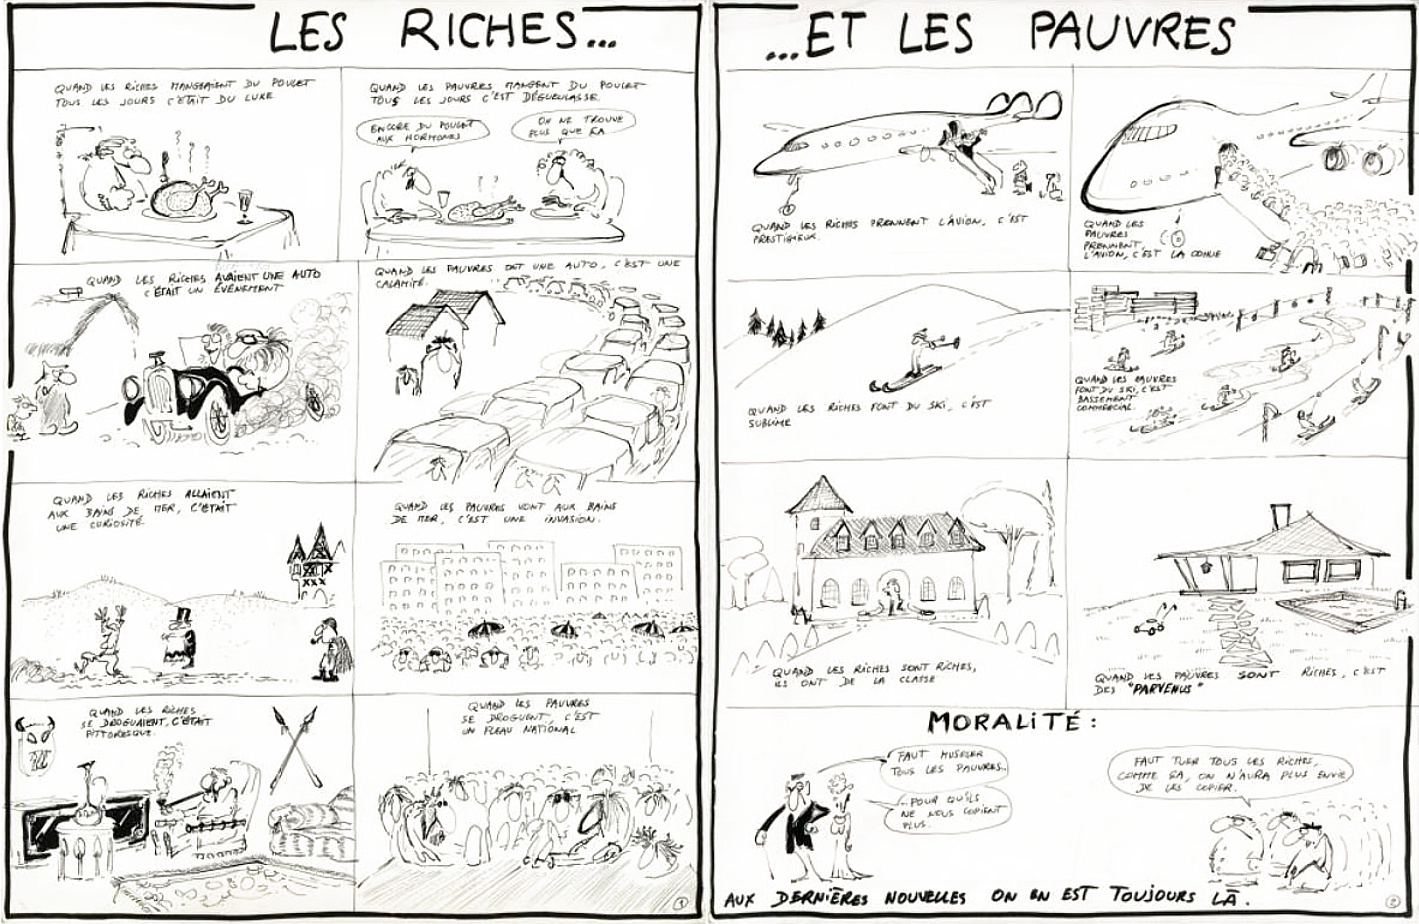 LES RICHES...
QUAND LES RICHES MANGEAIENT DU POULET
TOUS LES JOURS C'ÉTAIT DU LUXE
QUAND LES PAUVRES MANGENT DU POULET
TOUS LES JOURS C'EST DÉGUEULASSE.
ENCORE DU POULET
AUX HORMONES
ON NE TROUVE
PLUS QUE ÇA
QUAND LES RICHES AVAIENT UNE AUTO
C'ÉTAIT UN ÉVÉNEMENT
QUAND LES PAUVRES ONT UNE AUTO, C'EST UNE
CALAMITÉ.
QUAND LES RICHES ALLAIENT
AUX BAINS DE MER, C'ÉTAIT
UNE CURIOSITÉ
QUAND LES PAUVRES VONT AUX BAINS
DE MER, C'EST UNE INVASION.
QUAND LES RICHES
SE DROGUAIENT, C'ÉTAIT
PITTORESQUE.
QUAND LES PAUVRES
SE DROGUENT, C'EST
UN FLÉAU NATIONAL
1
...ET LES PAUVRES
QUAND LES RICHES PRENNENT L'AVION, C'EST
PRESTIGIEUX.
QUAND LES
PAUVRES
PRENNENT
L'AVION, C'EST LA COHUE
QUAND LES RICHES FONT DU SKI, C'EST
SUBLIME
QUAND LES PAUVRES
FONT DU SKI, C'EST
BASSEMENT
COMMERCIAL.
QUAND LES RICHES SONT RICHES,
ILS ONT DE LA CLASSE
QUAND LES PAUVRES SONT RICHES, C'EST
DES "PARVENUS"
MORALITÉ :
FAUT MUSELER
TOUS LES PAUVRES..
..POUR QU'ILS
NE NOUS COPIENT
PLUS.
FAUT TUER TOUS LES RICHES,
COMME ÇA, ON N'AURA PLUS ENVIE
DE LES COPIER.
AUX DERNIÈRES NOUVELLES ON EN EST TOUJOURS LÀ.
2